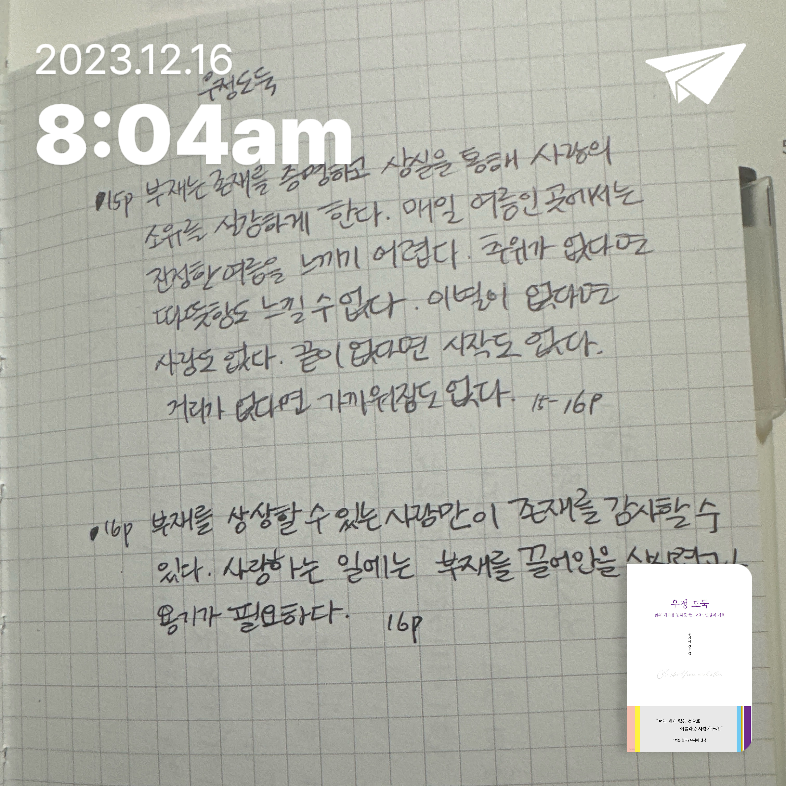 2023.12.16
우정도둑
8:04am
•15p 부재는 존재를 증명하고 상실을 통해 사랑의
소유를 실감하게 한다. 매일 여름인 곳에서는
진정한 여름을 느끼기 어렵다. 추위가 없다면
따뜻함도 느낄 수 없다. 이별이 없다면
사랑도 없다. 끝이 없다면 시작도 없다.
거리가 없다면 가까워짐도 없다. 15-16p
•16p 부재를 상상할 수 있는 사람만이 존재를 감사할 수
있다. 사랑하는 일에는 부재를 끌어안을
용기가 필요하다. 16p
우정 도둑